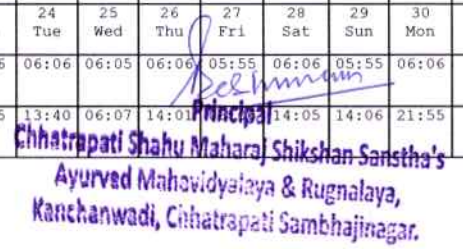 24 25 26 27 28 29 30
Tue Wed Thu Fri Sat Sun Mon
06:06 06:05 06:06 05:55 06:06 05:55 06:06
13:40 06:07 14:01 14:05 14:06 21:55
Principal
Chhatrapati Shahu Maharaj Shikshan Sanstha's
Ayurved Mahavidyalaya & Rugnalaya,
Kanchanwadi, Chhatrapati Sambhajinagar.